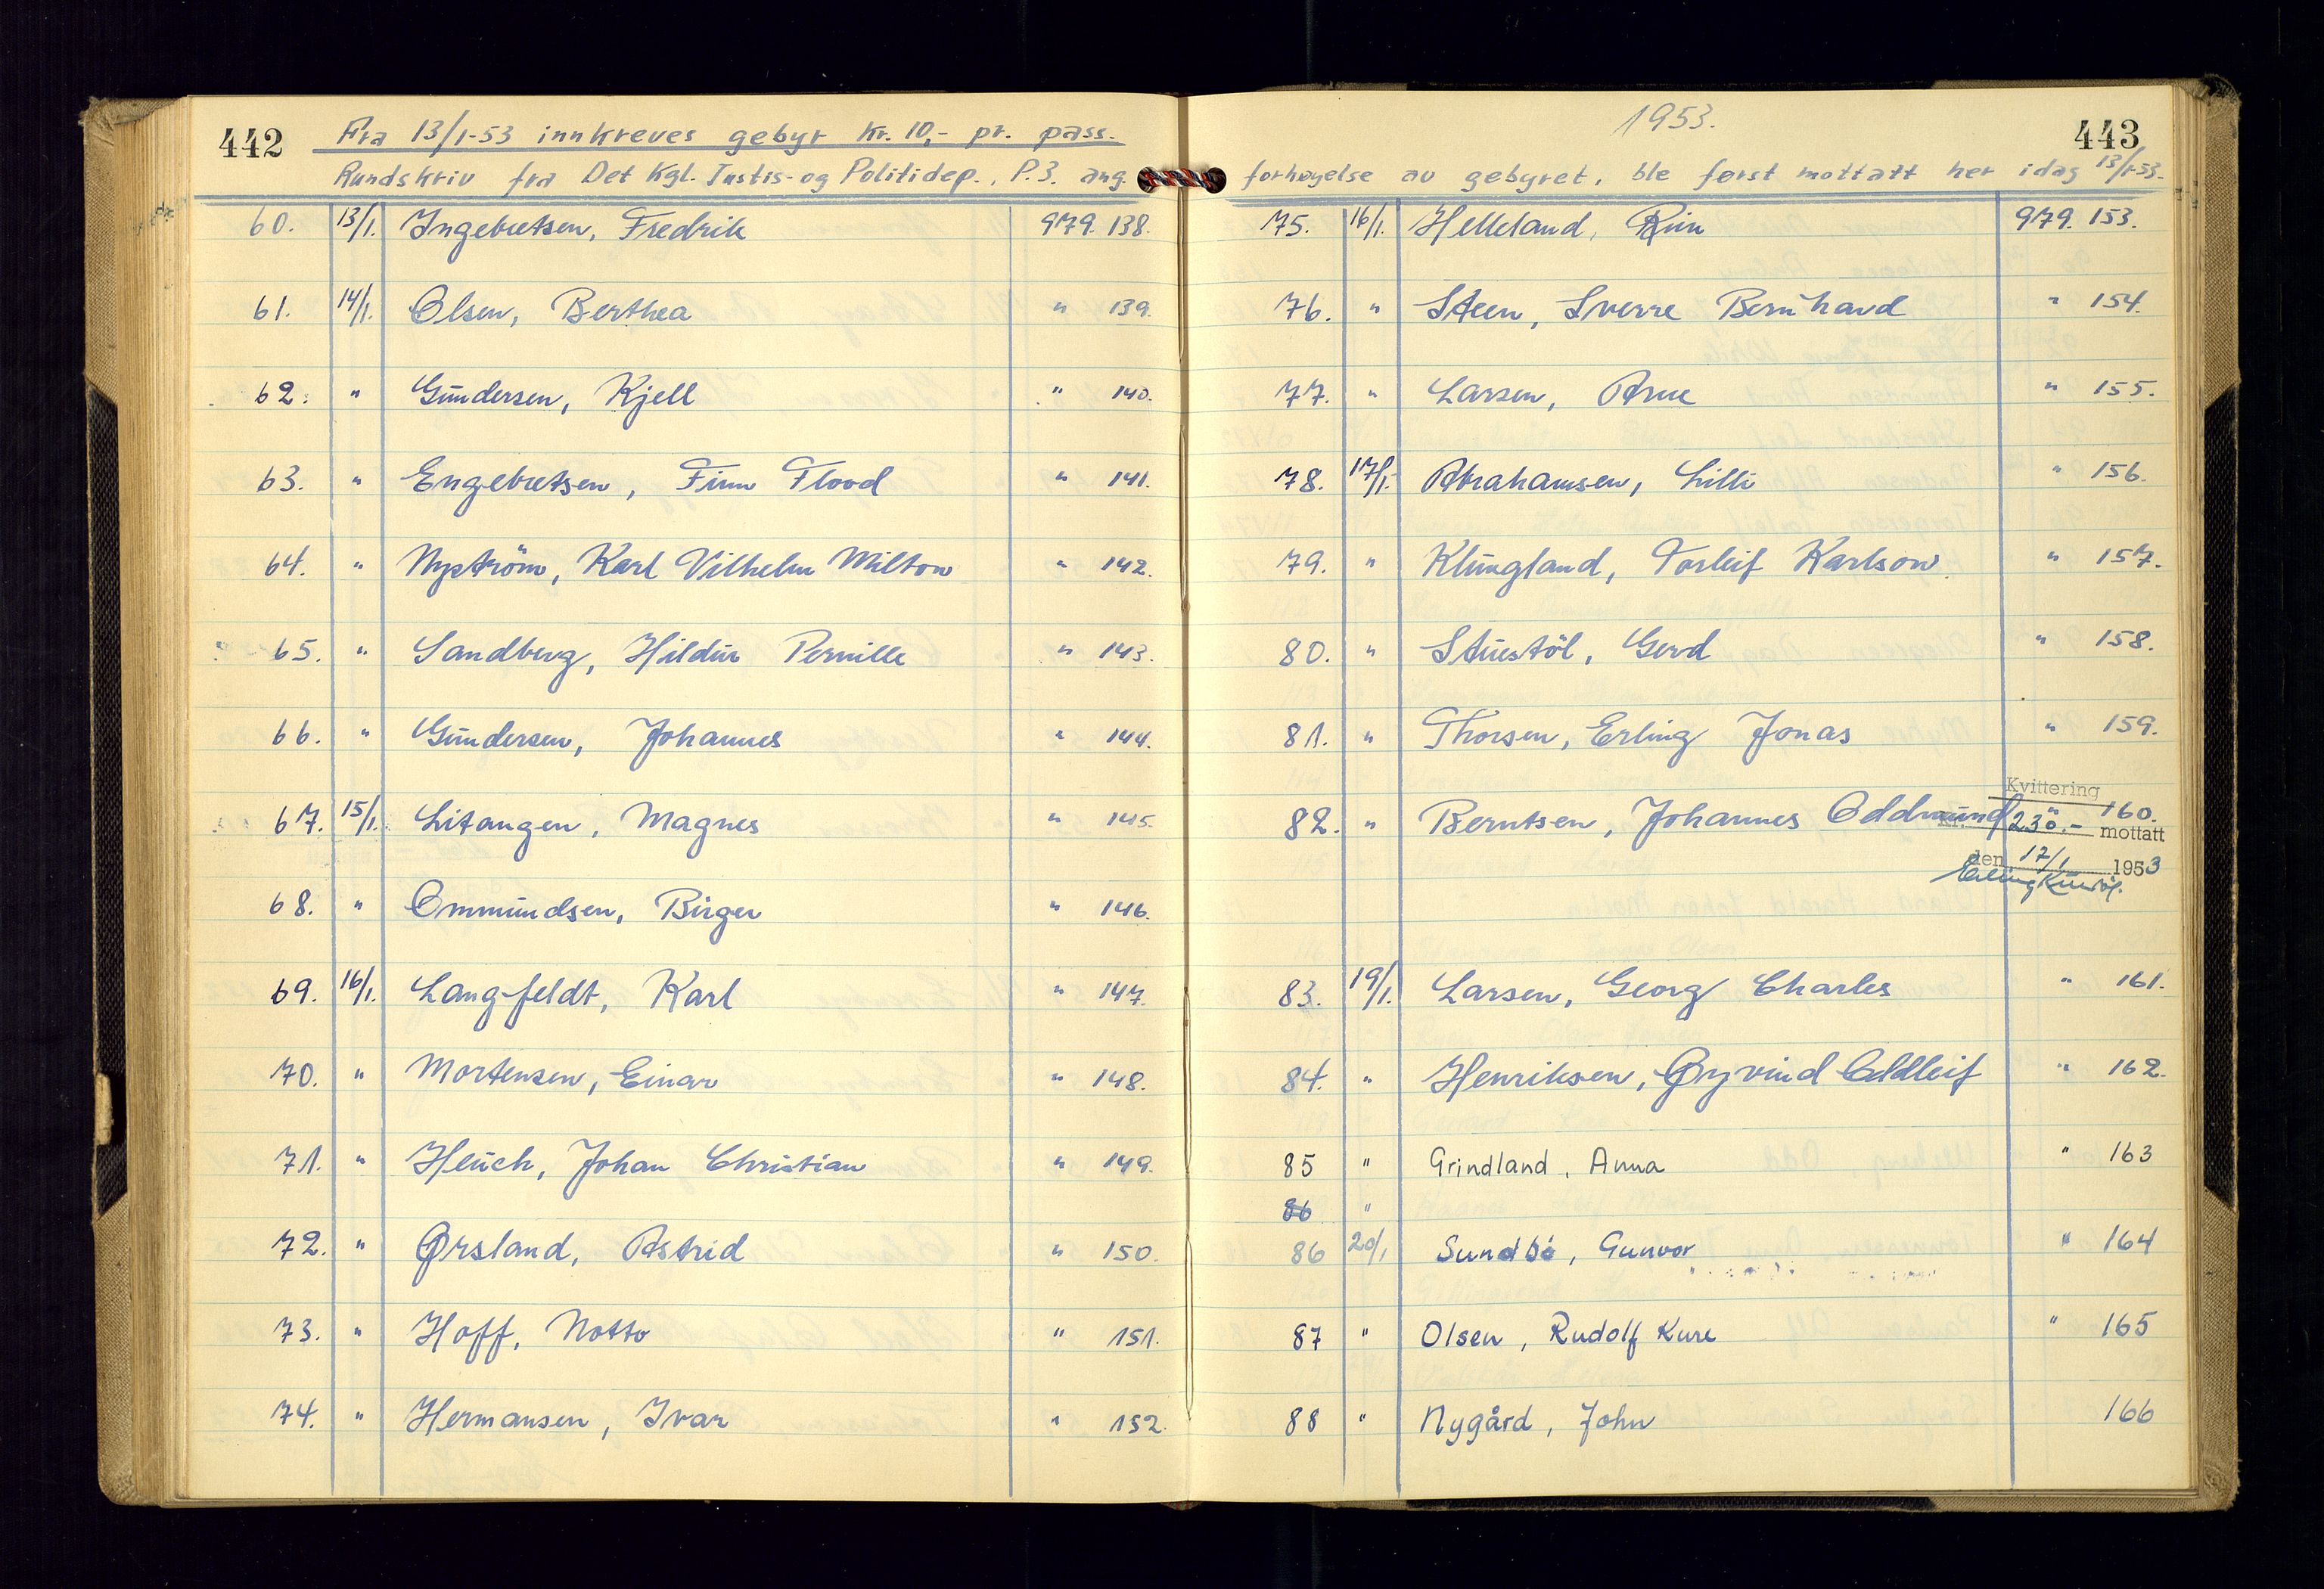 442
Fra 13/1-53 innkreves gebyr kr. 10,- pr. pass.
Rundskriv fra Det Kgl. Justis- og Politidep., P.3. ang.
60. 13/1. Ingebretsen, Fredrik 979. 138.
61. 14/1. Olsen, Berthea " 139.
62. " Gundersen, Kjell " 140.
63. " Engebretsen, Finn Flood " 141.
64. " Nyström, Karl Vilhelm Milton " 142.
65. " Sandberg, Hildur Pernille " 143.
66. " Gundersen, Johannes " 144.
67. 15/1. Litangen, Magnes " 145.
68. " Ommundsen, Birger " 146.
69. 16/1. Langfeldt, Karl " 147.
70. " Mortensen, Einar " 148.
71. " Heuch, Johan Christian " 149.
72. " Ørsland, Astrid " 150.
73. " Hoff, Notto " 151.
74. " Hermansen, Ivar " 152.
1953.
443
forhøyelse av gebyret, ble først mottatt her idag 13/1-53.
75. 16/1. Helleland, 979. 153.
76. " Steen, Sverre Bernhard " 154.
77. " Larsen, Arne " 155.
78. 17/1. Abrahamsen, Lilli " 156.
79. " Klungland, Torleif Karlson " 157.
80. " Stuestöl, Gerd " 158.
81. " Thorsen, Erling Jonas " 159.
Kvittering
82. " Berntsen, Johannes Oddmund " 160.
kr. 230.- mottatt
den 17/1 1953
Erling
83. 19/1. Larsen, Georg Charles " 161.
84. " Henriksen, Øyvind Oddleif " 162.
85 " Grindland, Anna " 163
86 "
86 20/1 Sundbö, Gunvor " 164
87 " Olsen, Rudolf Kure " 165
88 " Nygård, John 166